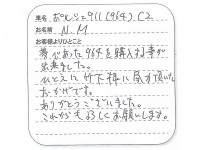 車名 ポルシェ911(964) C2
お名前 N.M
お客様よりひとこと
夢であった964を購入する事が
出来ました。
ひとえに竹下様に気付頂いた
おかげです。
ありがとうございました。
これからもよろしくお願いします。